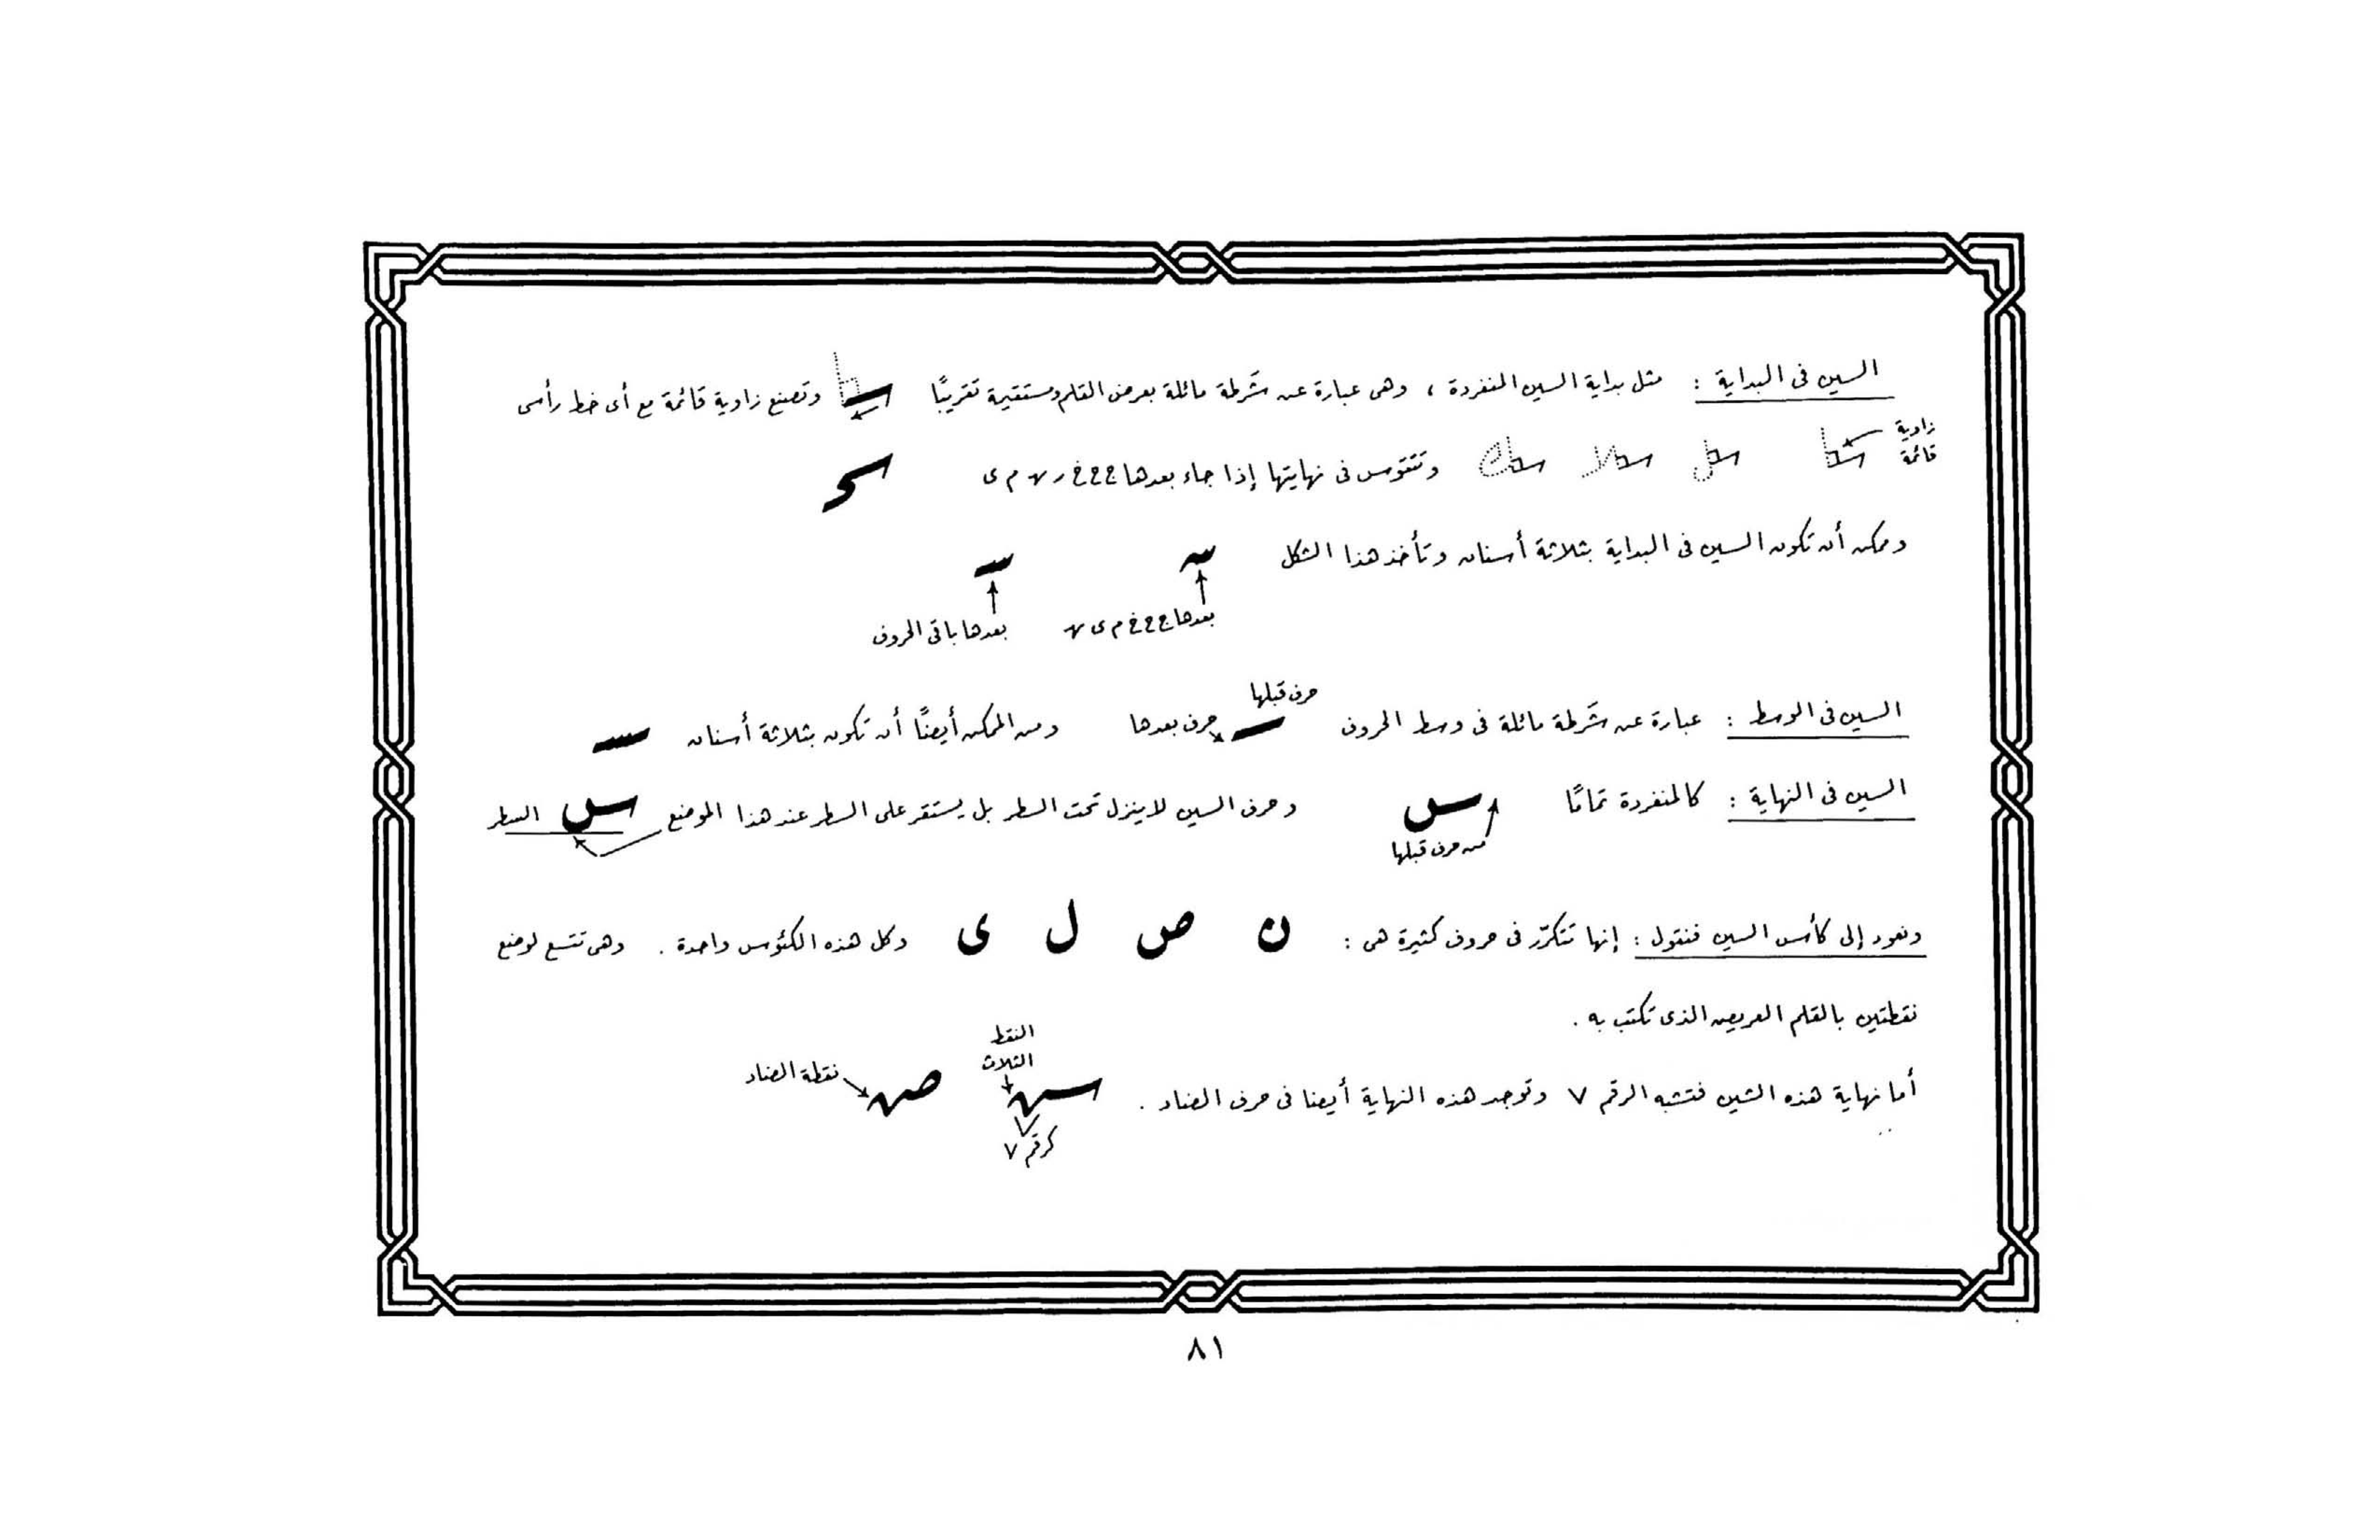 السين فى البداية : مثل بداية السين المنفردة ، وهى عبارة عن شَرطة مائلة بعرض القلم ومستقيمة تقريبًا وتصنع زاوية قائمة مع أى خط رأسى
زاوية
قائمة
وتتقوس فى نهايتها إذا جاء بعدها ج ح خ ر ه م ى
ويمكن أن تكون السين فى البداية بثلاثة أسنان وتأخذ هذا الشكل
بعدها ج ح خ م ى ه
بعدها باقى الحروف
السين فى الوسط : عبارة عن شَرطة مائلة فى وسط الحروف
حرف قبلها
حرف بعدها
ومن الممكن أيضًا أن تكون بثلاثة أسنان
السين فى النهاية : كالمنفردة تمامًا س وحرف السين لا ينزل تحت السطر بل يستقر على السطر عند هذا الموضع س السطر
من حرف قبلها
ونعود إلى كأس السين فنقول : إنها تتكرّر فى حروف كثيرة هى : ن ص ل ى وكل هذه الكئوس واحدة . وهى تتسع لوضع
نقطتين بالقلم العريض الذى تكتب به .
أما نهاية هذه الشين فتشبه الرقم ٧ وتوجد هذه النهاية أيضا فى حرف الضاد .
النقط
الثلاث
كرقم ٧
نقطة الضاد
٨١